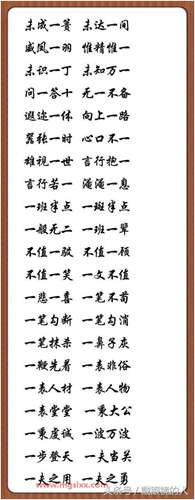 未成一篑 未达一间
威凤一羽 惟精惟一
未识一丁 未知万一
问一答十 无一不备
遐迩一体 向上一路
嚣张一时 心口不一
雄视一世 言行抱一
言行若一 淹淹一息
一班半点 一斑半点
一般无二 不值一晕
不值一驳 不值一顾
不值一笑 一文不值
一悲一喜 一笔不苟
一笔勾断 一笔勾消
一笔抹杀 一鼻子灰
一鞭先着 一表非俗
一表人材 一表人物
一表堂堂 一秉大公
一秉虔诚 一波万波
一步登天 一夫当关
一夫之用 一夫之勇
www.mgslxx.com
头条号